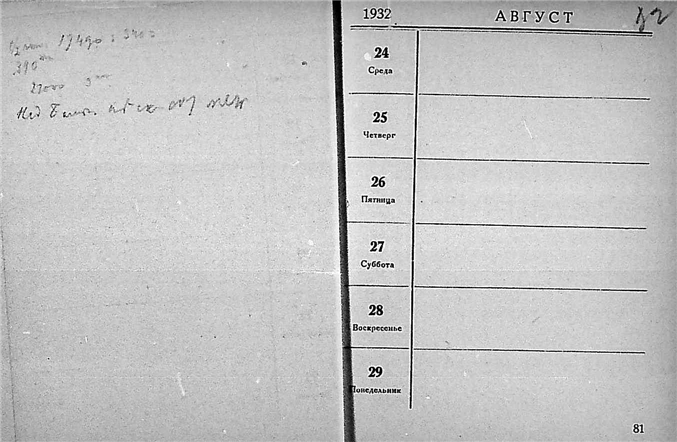 390
1932 АВГУСТ 82
24
Среда
25
Четверг
26
Пятница
27
Суббота
28
Воскресенье
29
Понедельник
81